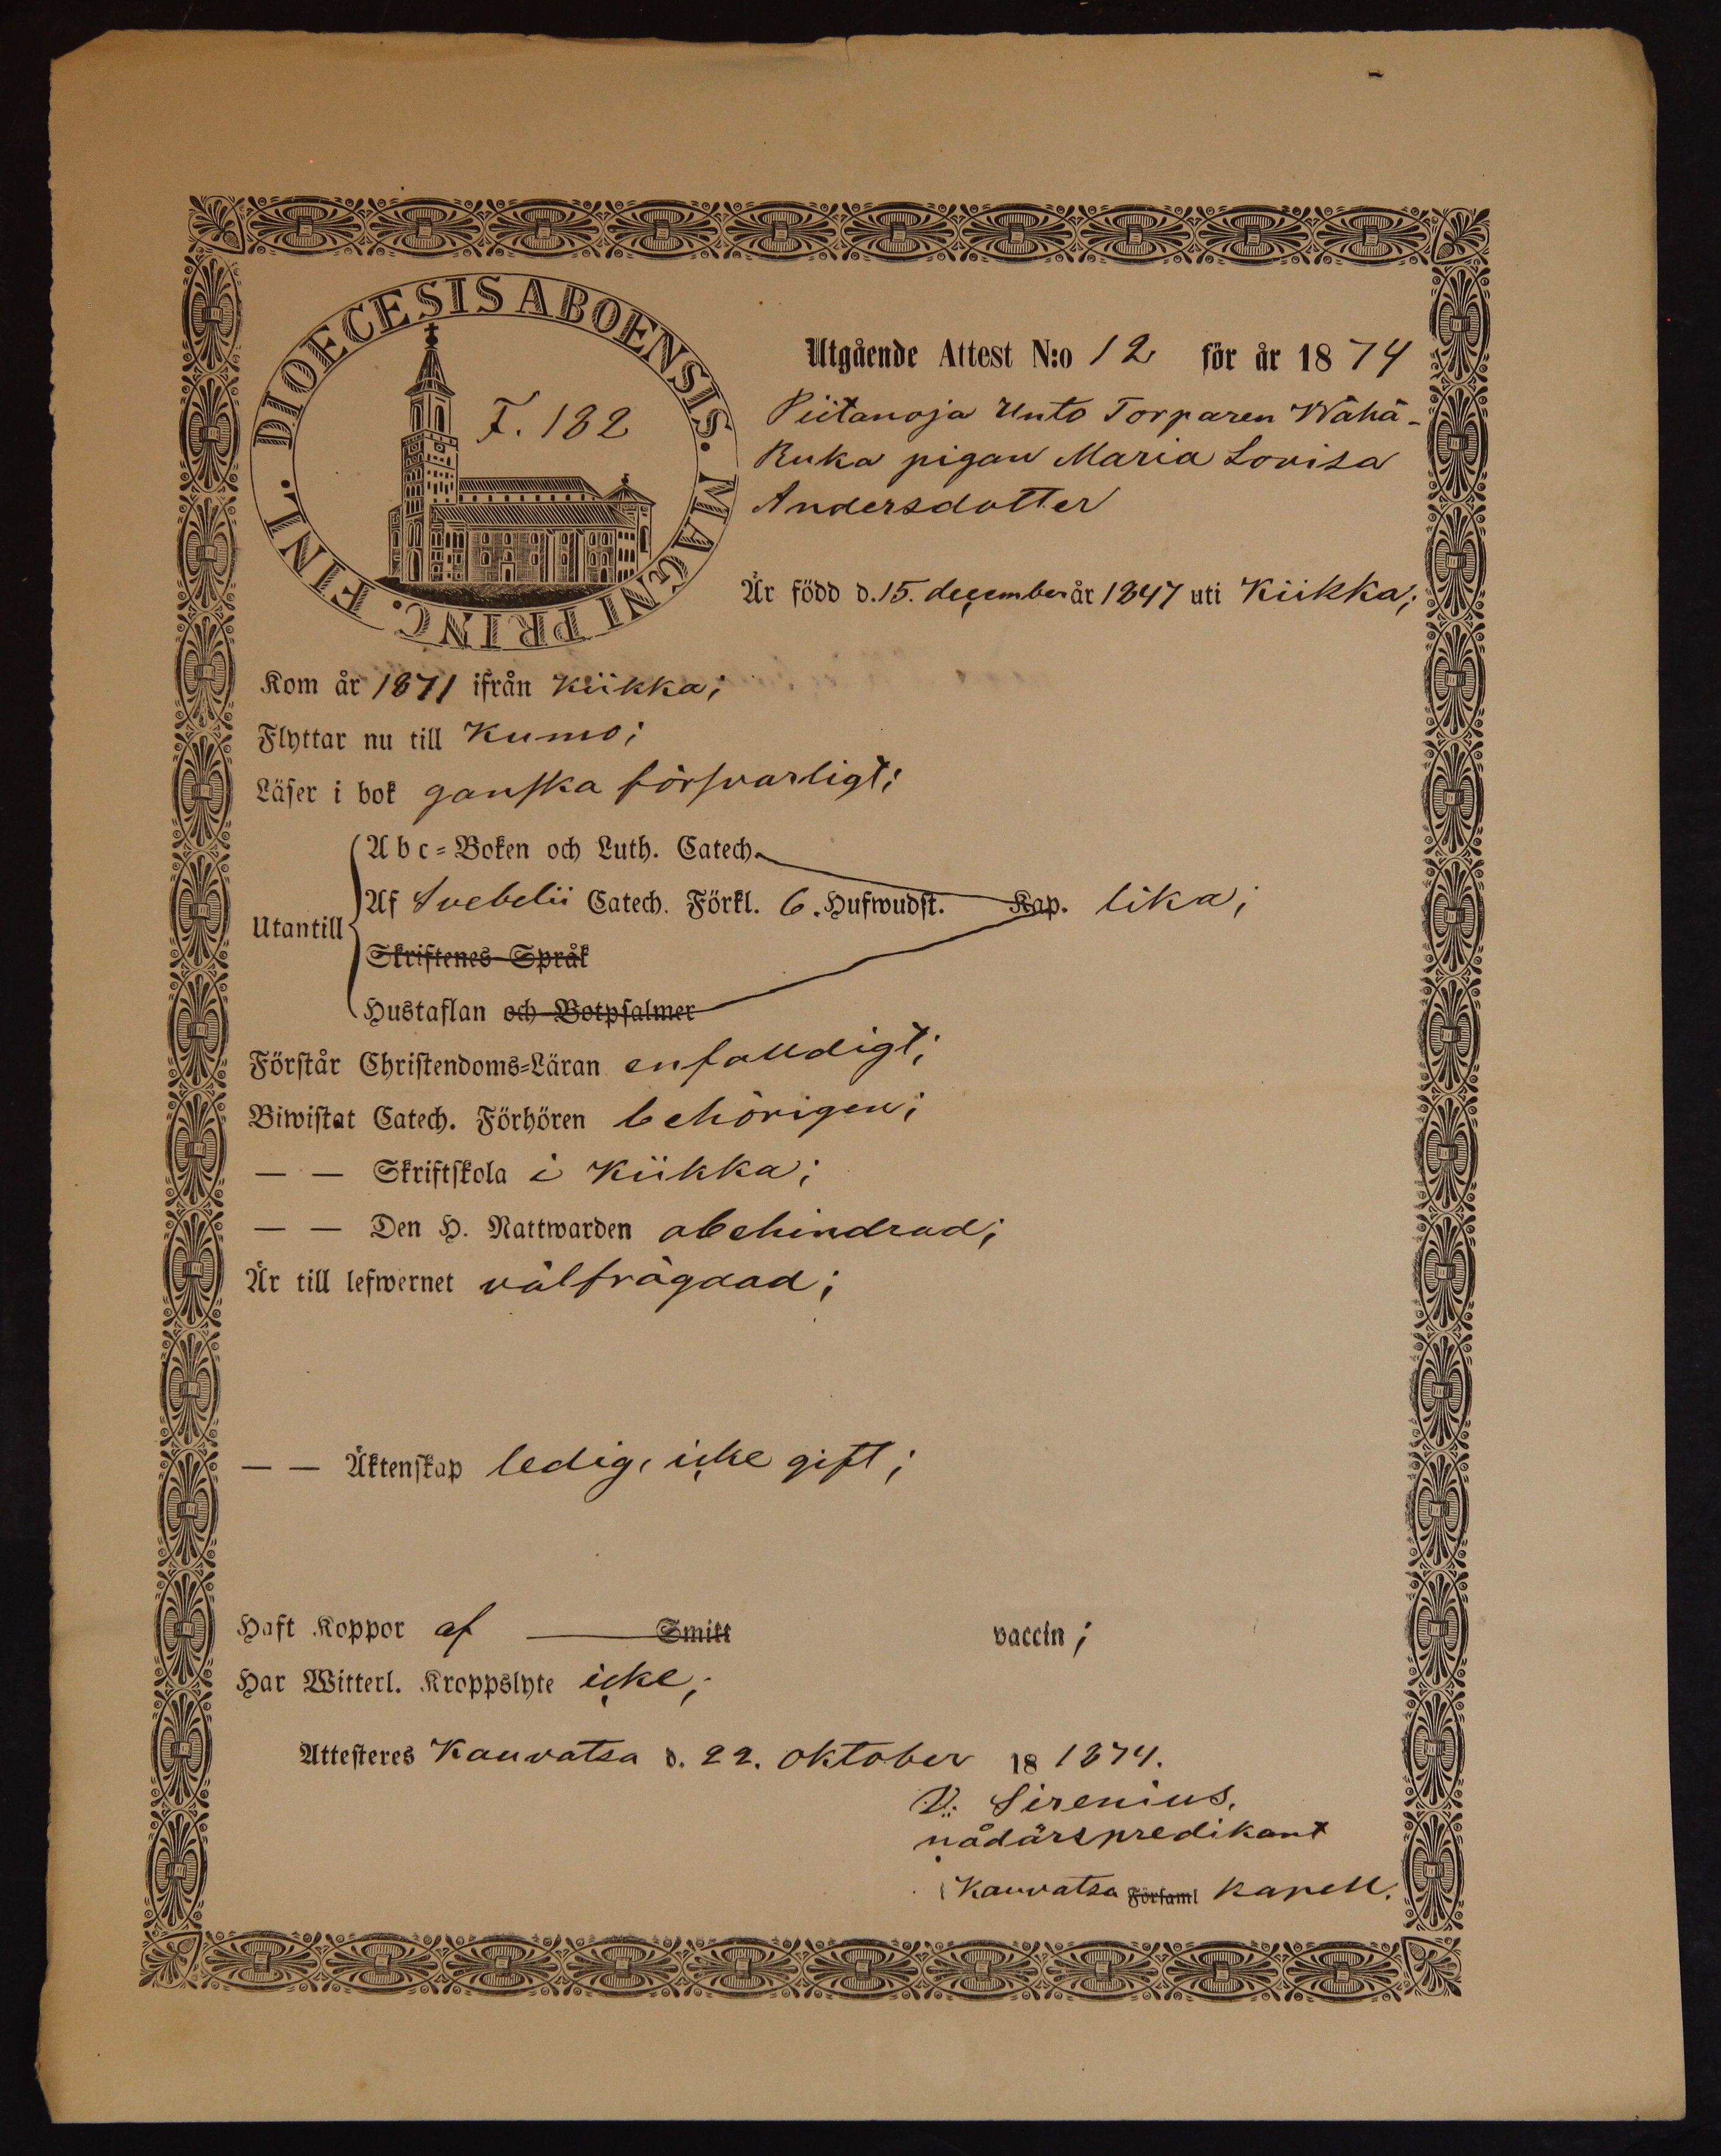 DIOECESIS ABOENSIS. MAGNI PRINC. FINL.
F. 182
Utgående Attest N:o 12 för år 1874
Piitanoja Unto Torparen Wähä-
Ruka pigan Maria Lovisa
Andersdotter
Är född d. 15. december år 1847 uti Kiikka;
Kom år 1871 ifrån Kiikka;
Flyttar nu till Kumo;
Läser i bok ganska försvarligt;
Utantill
Abc=Boken och Luth. Catech.
Af Svebelii Catech. Förkl. 6. Hufwudst. Kap. lika;
Skriftenes Språk
Hustaflan och Botpsalmer
Förstår Christendoms=Läran enfalldigt;
Biwistat Catech. Förhören behörigen;
— — Skriftskola i Kiikka;
— — Den H. Nattwarden obehindrad;
Är till lefwernet välfrägdad;
— — Äktenskap ledig, icke gift;
Haft Koppor af Smitt vaccin;
Har Witterl. Kroppslyte icke;
Attesteres Kauvatsa d. 22. oktober 18 1874.
V. Sirenius,
nådårspredikant
i Kauvatsa Församl kapell.